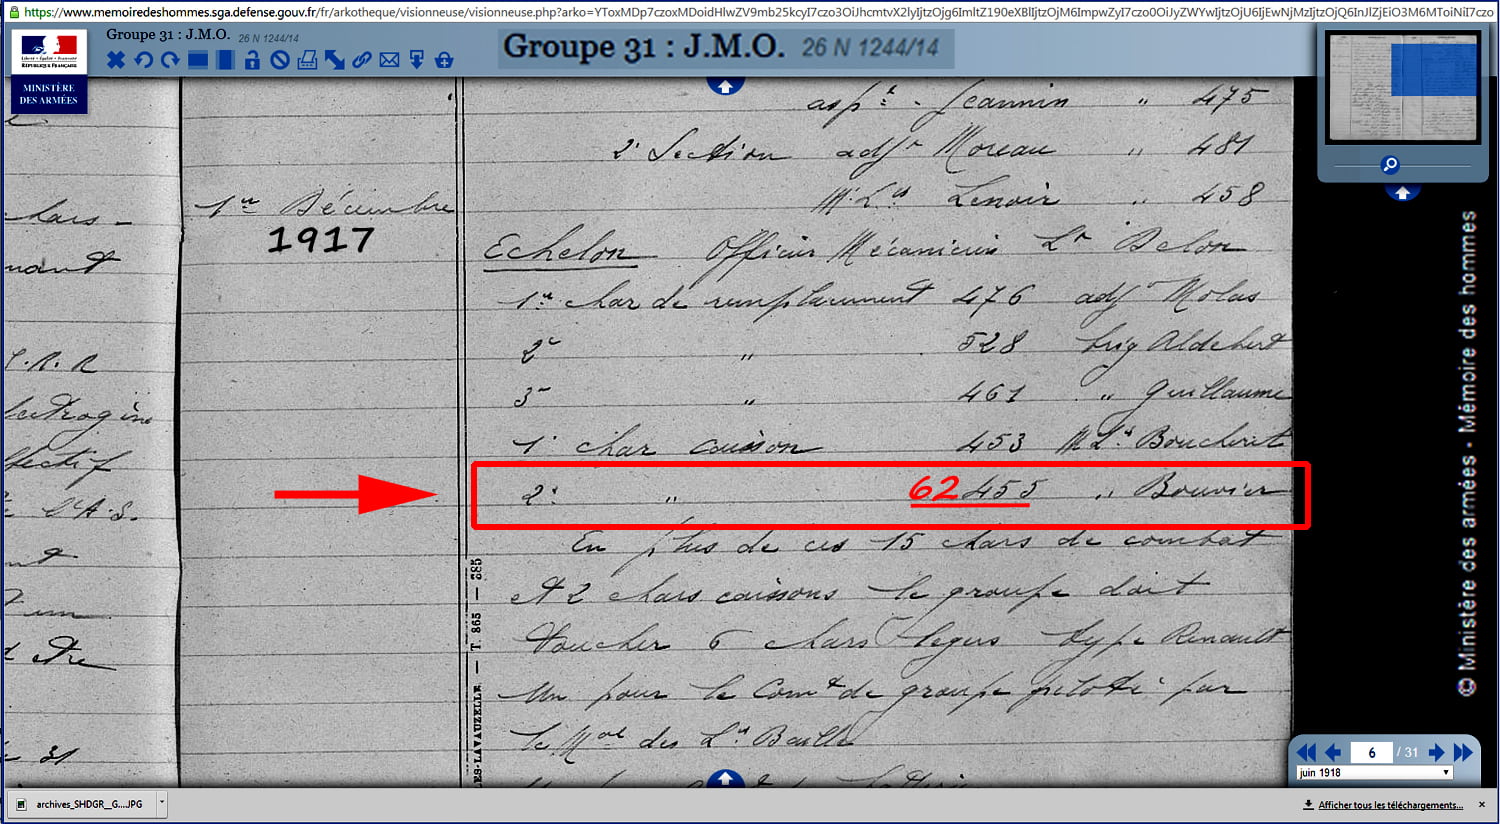 https://www.memoiredeshommes.sga.defense.gouv.fr/fr/arkotheque/visionneuse/visionneuse.php?arko=
Groupe 31 : J.M.O. 26 N 1244/14
Groupe 31 : J.M.O. 26 N 1244/14
Liberté • Égalité • Fraternité
RÉPUBLIQUE FRANÇAISE
MINISTÈRE
DES ARMÉES
aspt - Jeannin " 475
2e Section adjt Moreau " 481
M. Lis Lenoir " 458
1er Décembre
1917
Echelon Officier Mécanicien Lt Delon
1er char de remplacement 476 adjt Molas
2e " 528 brig Aldebert
3e " 461 " Guillaume
1er char caisson 453 M Lis Boucheret
2e " 62455 " Bouvier
En plus de ces 15 chars de combat
et 2 chars caissons le groupe doit
toucher 6 chars légers type Renault
Un pour le Comt de groupe piloté par
le Mal des Lis
nant
T.R.R
ffectif
l'A.S.
un
être
31
ES-LAVAUZELLE — T. 865 — 385
© Ministère des armées - Mémoire des hommes
6 / 31
juin 1918
archives_SHDGR__G....JPG
Afficher tous les téléchargements...